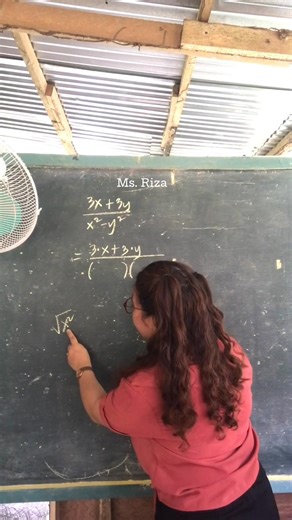 Ms. Riza
3x + 3y
x² - y²
= 3·x + 3·y
( )(
√x²